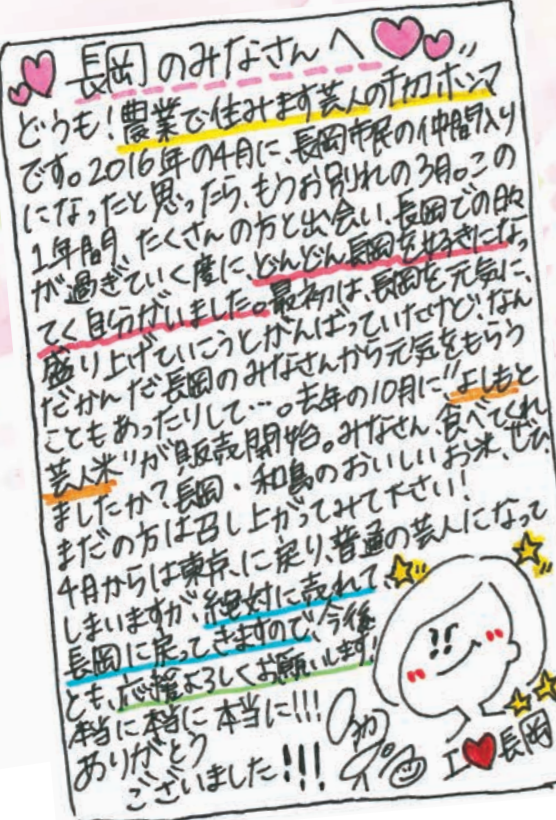 長岡のみなさんへ
どうも!農業で住みます芸人のチカコホンマ
です。2016年の4月に、長岡市民の仲間入り
になったと思ったら、もうお別れの3月。この
1年間 たくさんの方と出会い、長岡での日々
が過ぎていく度に、どんどん長岡を好きになっ
てく自分がいました。最初は、長岡を元気に、
盛り上げていこうとがんばっていたけど、なん
だかんだ長岡のみなさんから元気をもらう
こともあったりして…。去年の10月に"よしもと
芸人米"が販売開始。みなさん、食べてくれ
ましたか?長岡・和島のおいしいお米、ぜひ
まだの方は召し上がってみて下さい!
4月からは東京に戻り、普通の芸人になって
しまいますが、絶対に売れて、
長岡に戻ってきますので、今後
とも、応援よろしくお願いします!
本当に本当に本当に!!!
ありがとう
ございました!!!
I♥長岡